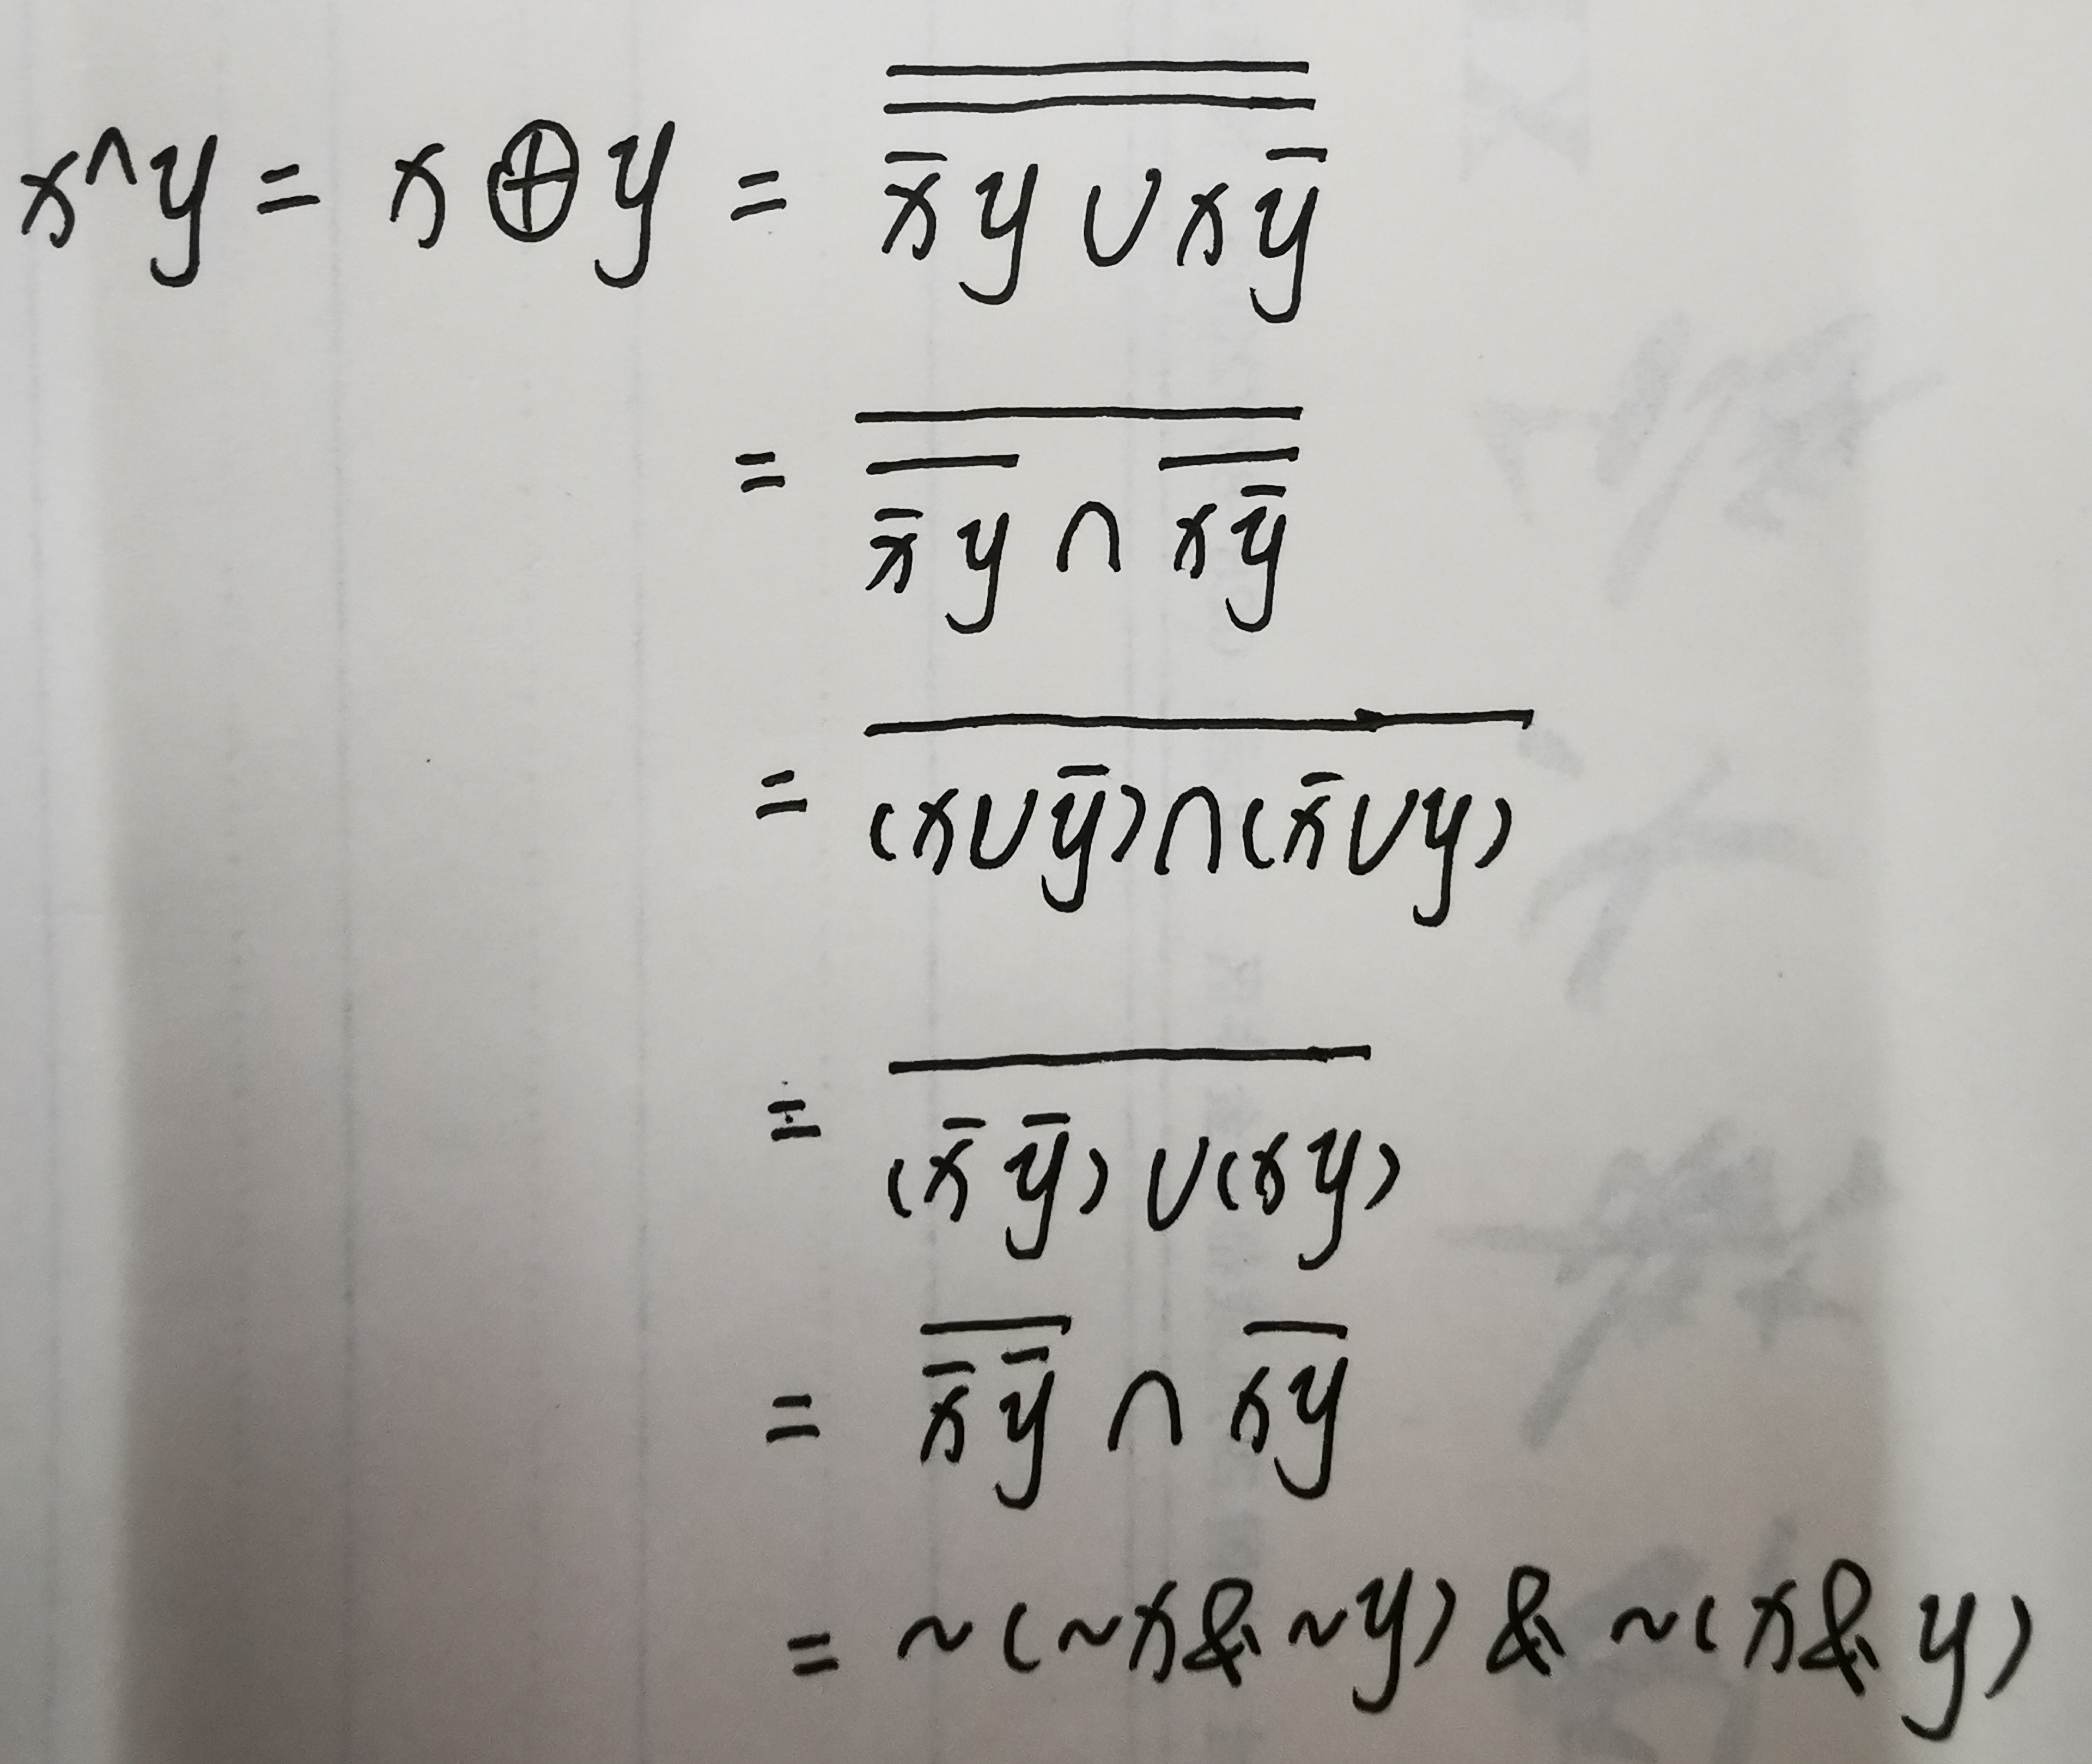 x^y = x ⊕ y = \overline{\overline{\bar{x}y ∪ x\bar{y}}}
= \overline{\overline{\bar{x}y} ∩ \overline{x\bar{y}}}
= \overline{(x∪\bar{y})∩(\bar{x}∪y)}
= \overline{(\bar{x}\bar{y})∪(xy)}
= \overline{\bar{x}\bar{y}} ∩ \overline{xy}
= ~(~x&~y) & ~(x&y)